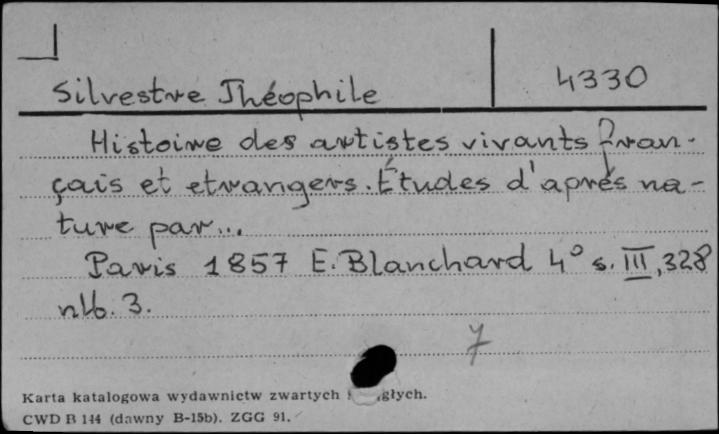 Silvestre Théophile 4330
Histoire des artistes vivants fran-
çais et etrangers. Études d'aprés na-
ture par...
Paris 1857 E. Blanchard 4° s. III, 328
nlb. 3.
7
Karta katalogowa wydawnictw zwartych
CWD B 144 (dawny B-15b). ZGG 91.